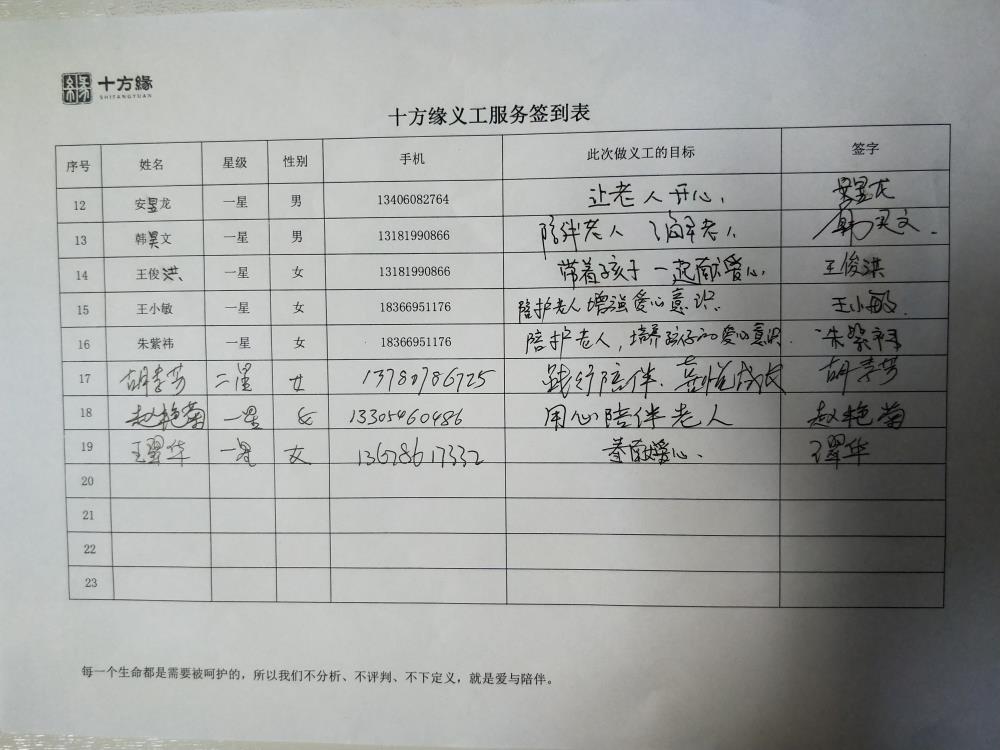 十方緣
SHIFANGYUAN
十方缘义工服务签到表
序号 姓名 星级 性别 手机 此次做义工的目标 签字
12 安昱龙 一星 男 13406082764 让老人开心, 安昱龙
13 韩昊文 一星 男 13181990866 陪伴老人 了解老人 韩昊文.
14 王俊洪 一星 女 13181990866 带着孩子一起献爱心, 王俊淇
15 王小敏 一星 女 18366951176 陪护老人增强爱心意识. 王小敏
16 朱紫祎 一星 女 18366951176 陪护老人,培养孩子的爱心意识. 朱紫祎
17 胡李芳 二星 女 13780786725 践行陪伴、喜悦成长 胡李芳
18 赵艳菊 一星 女 13305460486 用心陪伴老人 赵艳菊
19 王翠华 一星 女 13678617332 奉献爱心、 王翠华
20
21
22
23
每一个生命都是需要被呵护的，所以我们不分析、不评判、不下定义，就是爱与陪伴。